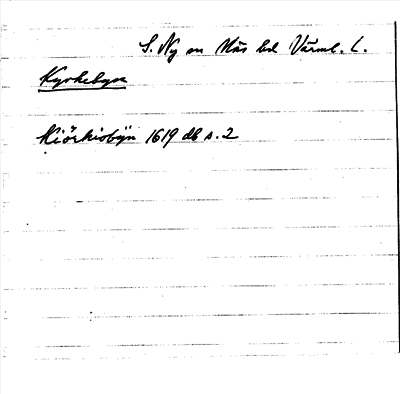 S. Ny sn Näs hd Värml. l.
Kyrkebyn
Kiörkiobÿn 1619 db s. 2